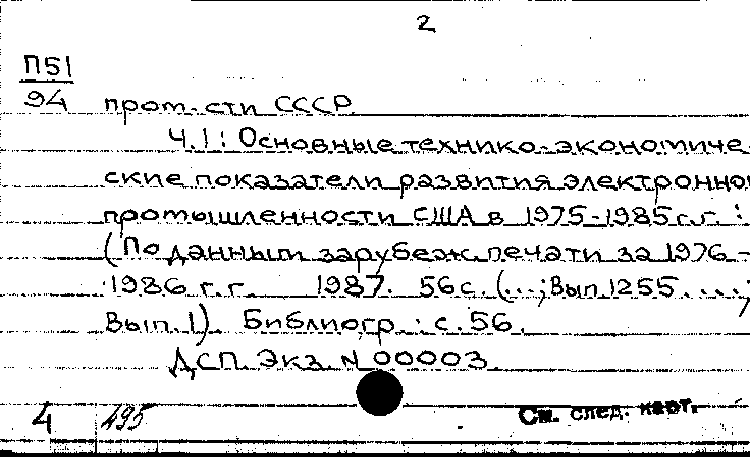 2
П51
94
пром-сти СССР.
Ч.1: Основные технико-экономиче-
ские показатели развития электронной
промышленности США в 1975-1985 г.г.:
(По данным зарубеж. печати за 1976-
1986 г.г. 1987. 56 с. (...; Вып. 1255. ...;
Вып. 1). Библиогр.: с. 56.
ДСП. Экз. N 00003.
4 495
См. след. карт.